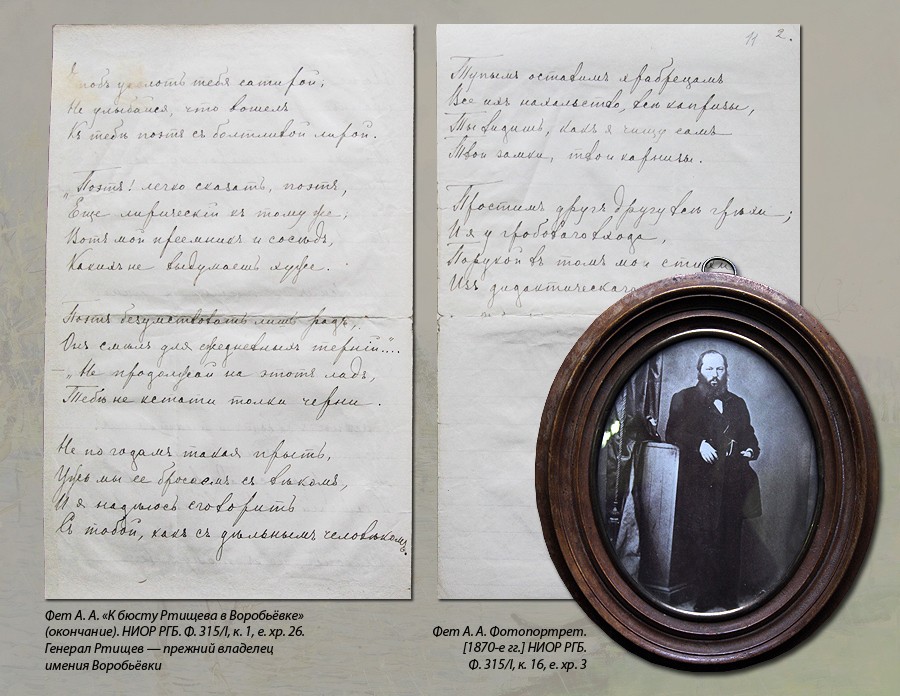 Чтобъ уколоть тебя сатирой;
Не улыбайся, что вошелъ
Къ тебѣ поэтъ съ болтливой лирой.
„Поэтъ! легко сказать, поэтъ,
Еще лирическій къ тому же,
Вотъ мой преемникъ и сосѣдъ,
Какихъ не выдумаешь хуже.
Поэтъ безумствовать лишь радъ,
Онъ слѣпъ для ежедневныхъ терній"....
– „Не продолжай на этотъ ладъ,
Тебѣ не кстати толки черни.
Не по годамъ такая прыть,
Ужъ мы ее бросаемъ съ вѣкомъ,
И я надѣюсь сговорить
Съ тобой, какъ съ дѣльнымъ человѣкомъ.
11 2.
Тупымъ оставимъ храбрецамъ
Все ихъ нахальство, всѣ капризы,
Ты видишь, какъ я чищу самъ
Твои замки, твои карнизы.
Простимъ другъ другу всѣ грѣхи;
И я у гробоваго входа,
Порукой въ томъ мои стихи
Изъ дидактическаго
Фет А. А. «К бюсту Ртищева в Воробьёвке»
(окончание). НИОР РГБ. Ф. 315/I, к. 1, е. хр. 26.
Генерал Ртищев — прежний владелец
имения Воробьёвки
Фет А. А. Фотопортрет.
[1870-е гг.] НИОР РГБ.
Ф. 315/I, к. 16, е. хр. 3